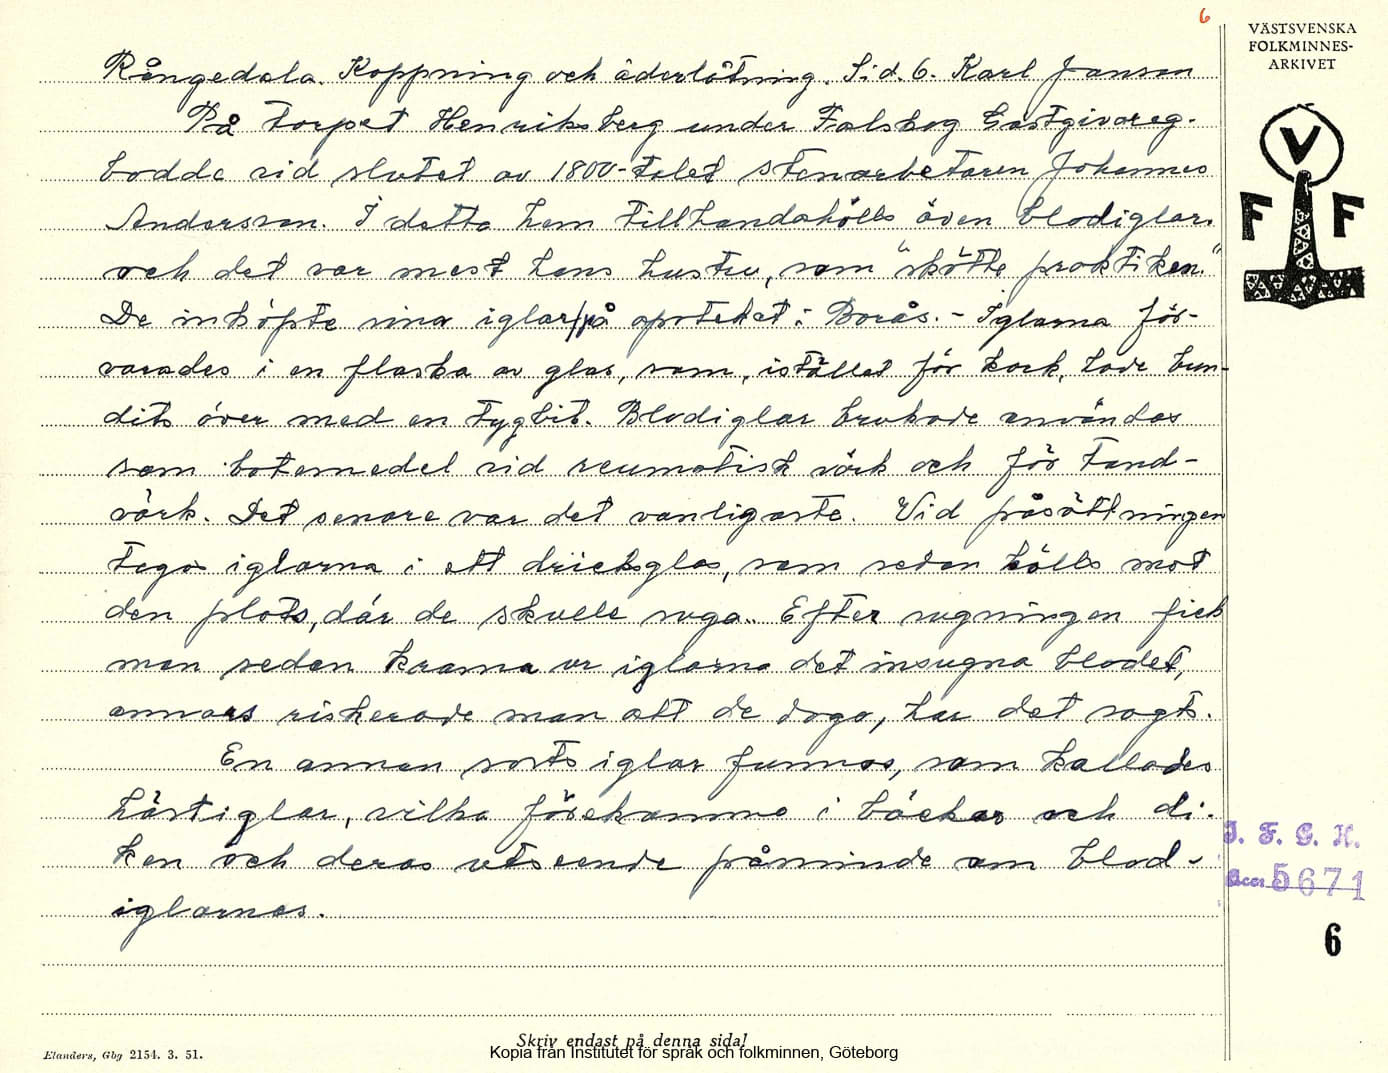 6
VÄSTSVENSKA
FOLKMINNES-
ARKIVET
V
F F
Rångedala. Koppning och åderlåtning. Sid. 6. Karl Janson
På torpet Henriksberg under Falskog Gästgivareg.
bodde vid slutet av 1800-talet stenarbetaren Johannes
Andersson. I detta hem tillhandahölls även blodiglar.
och det var mest hans hustru, som "skötte praktiken."
De inköpte sina iglar på apoteket i Borås. - Iglarna för-
varades i en flaska av glas, som, istället för kork, hade bun-
dits över med en tygbit. Blodiglar brukade användas
som botemedel vid reumatisk värk och för tand-
värk. Det senare var det vanligaste. Vid påsättningen
togos iglarna i ett dricksglas, som sedan hölls mot
den plats, där de skulle suga.. Efter sugningen fick
man sedan krama ur iglarna det insugna blodet,
annars riskerade man att de dogo, har det sagts.
En annan sorts iglar funnos, som kallades
hästiglar, vilka förekommo i bäckar och di-
ken och deras utseende påminde om blod-
iglarnas.
I. F. G. H.
Acc. 5671
6
Skriv endast på denna sida!
Elanders, Gbg 2154. 3. 51.
Kopia från Institutet för språk och folkminnen, Göteborg